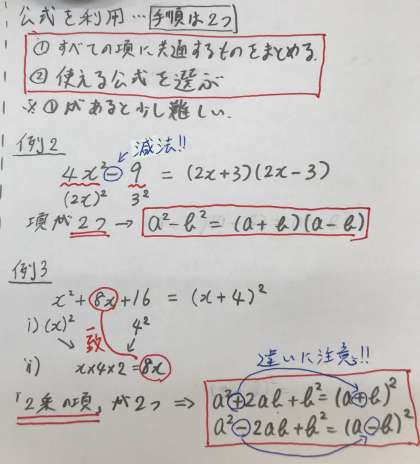 公式を利用…手順は2つ
① すべての項に共通するものをまとめる.
② 使える公式を選ぶ
※①があると少し難しい.
例2
減法!!
4x² - 9 = (2x+3)(2x-3)
(2x)² 3²
項が2つ → a²-b² = (a+b)(a-b)
例3
x²+8x+16 = (x+4)²
i) (x)² 一致 4²
ii) x×4×2=8x
違いに注意!!
「2乗の項」が2つ ⇒ a²+2ab+b²=(a+b)²
a²-2ab+b²=(a-b)²